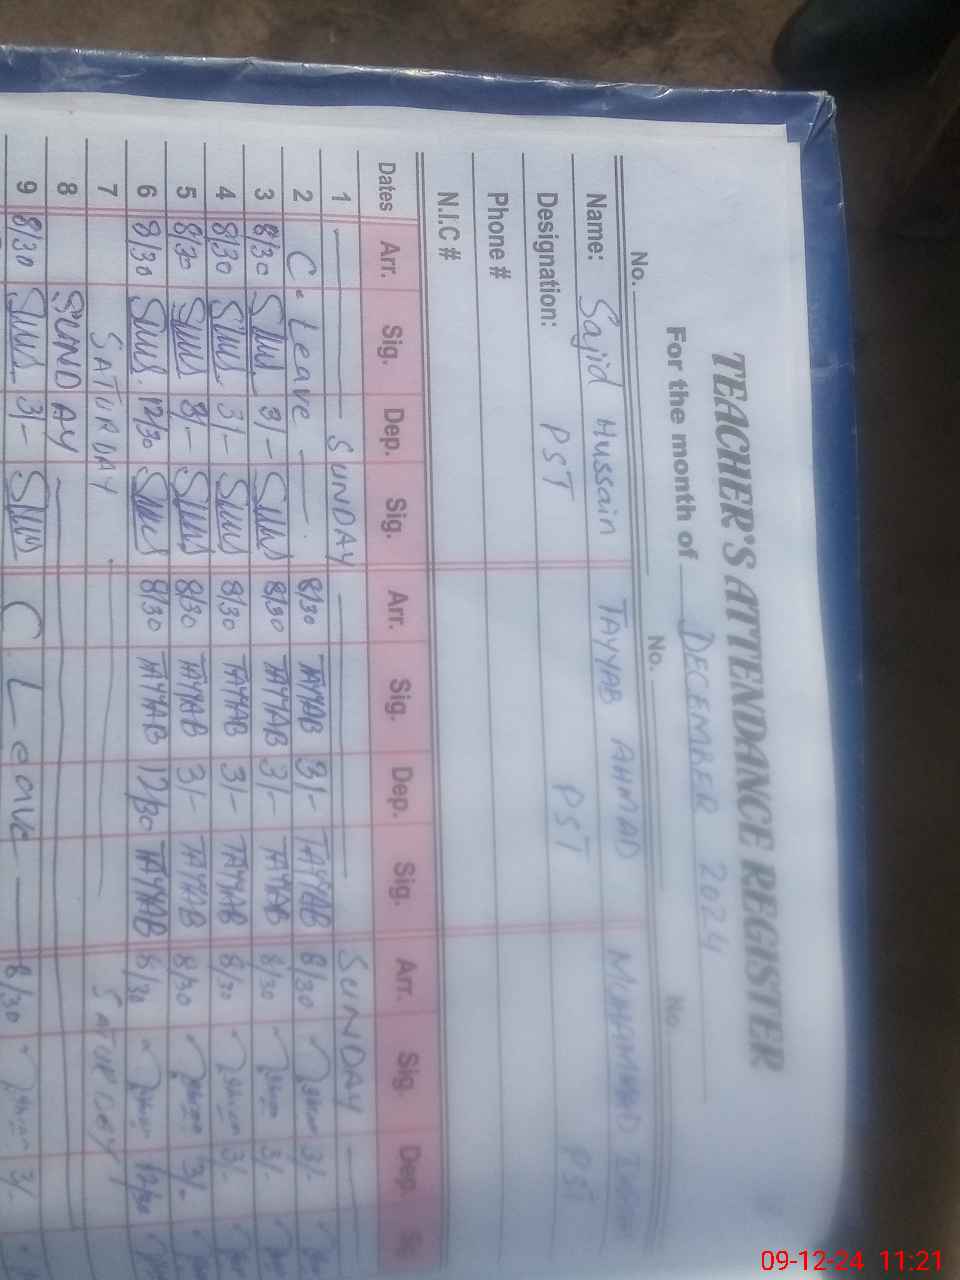 TEACHER'S ATTENDANCE REGISTER
For the month of DECEMBER 2024
No. No. No.
Name: Sajid Hussain TAYYAB AHMAD MUHAMMAD
Designation: PST PST PST
Phone #
N.I.C #
Dates Arr. Sig. Dep. Sig. Arr. Sig. Dep. Sig. Arr. Sig. Dep.
1 SUNDAY SUNDAY
2 C. Leave 8/30 TAYYAB 3/- TAYYAB 8/30 3/-
3 8/30 3/- 8/30 TAYYAB 3/- TAYYAB 8/30 3/-
4 8/30 3/- 8/30 TAYYAB 3/- TAYYAB 8/30 3/-
5 8/30 8/30 TAYYAB 3/- TAYYAB 8/30 3/-
6 8/30 12/30 8/30 TAYYAB 12/30 TAYYAB 8/30 12/30
7 SATURDAY SATURDAY
8 SUNDAY
9 8/30 3/- C Leave 8/30 3/-
09-12-24 11:21